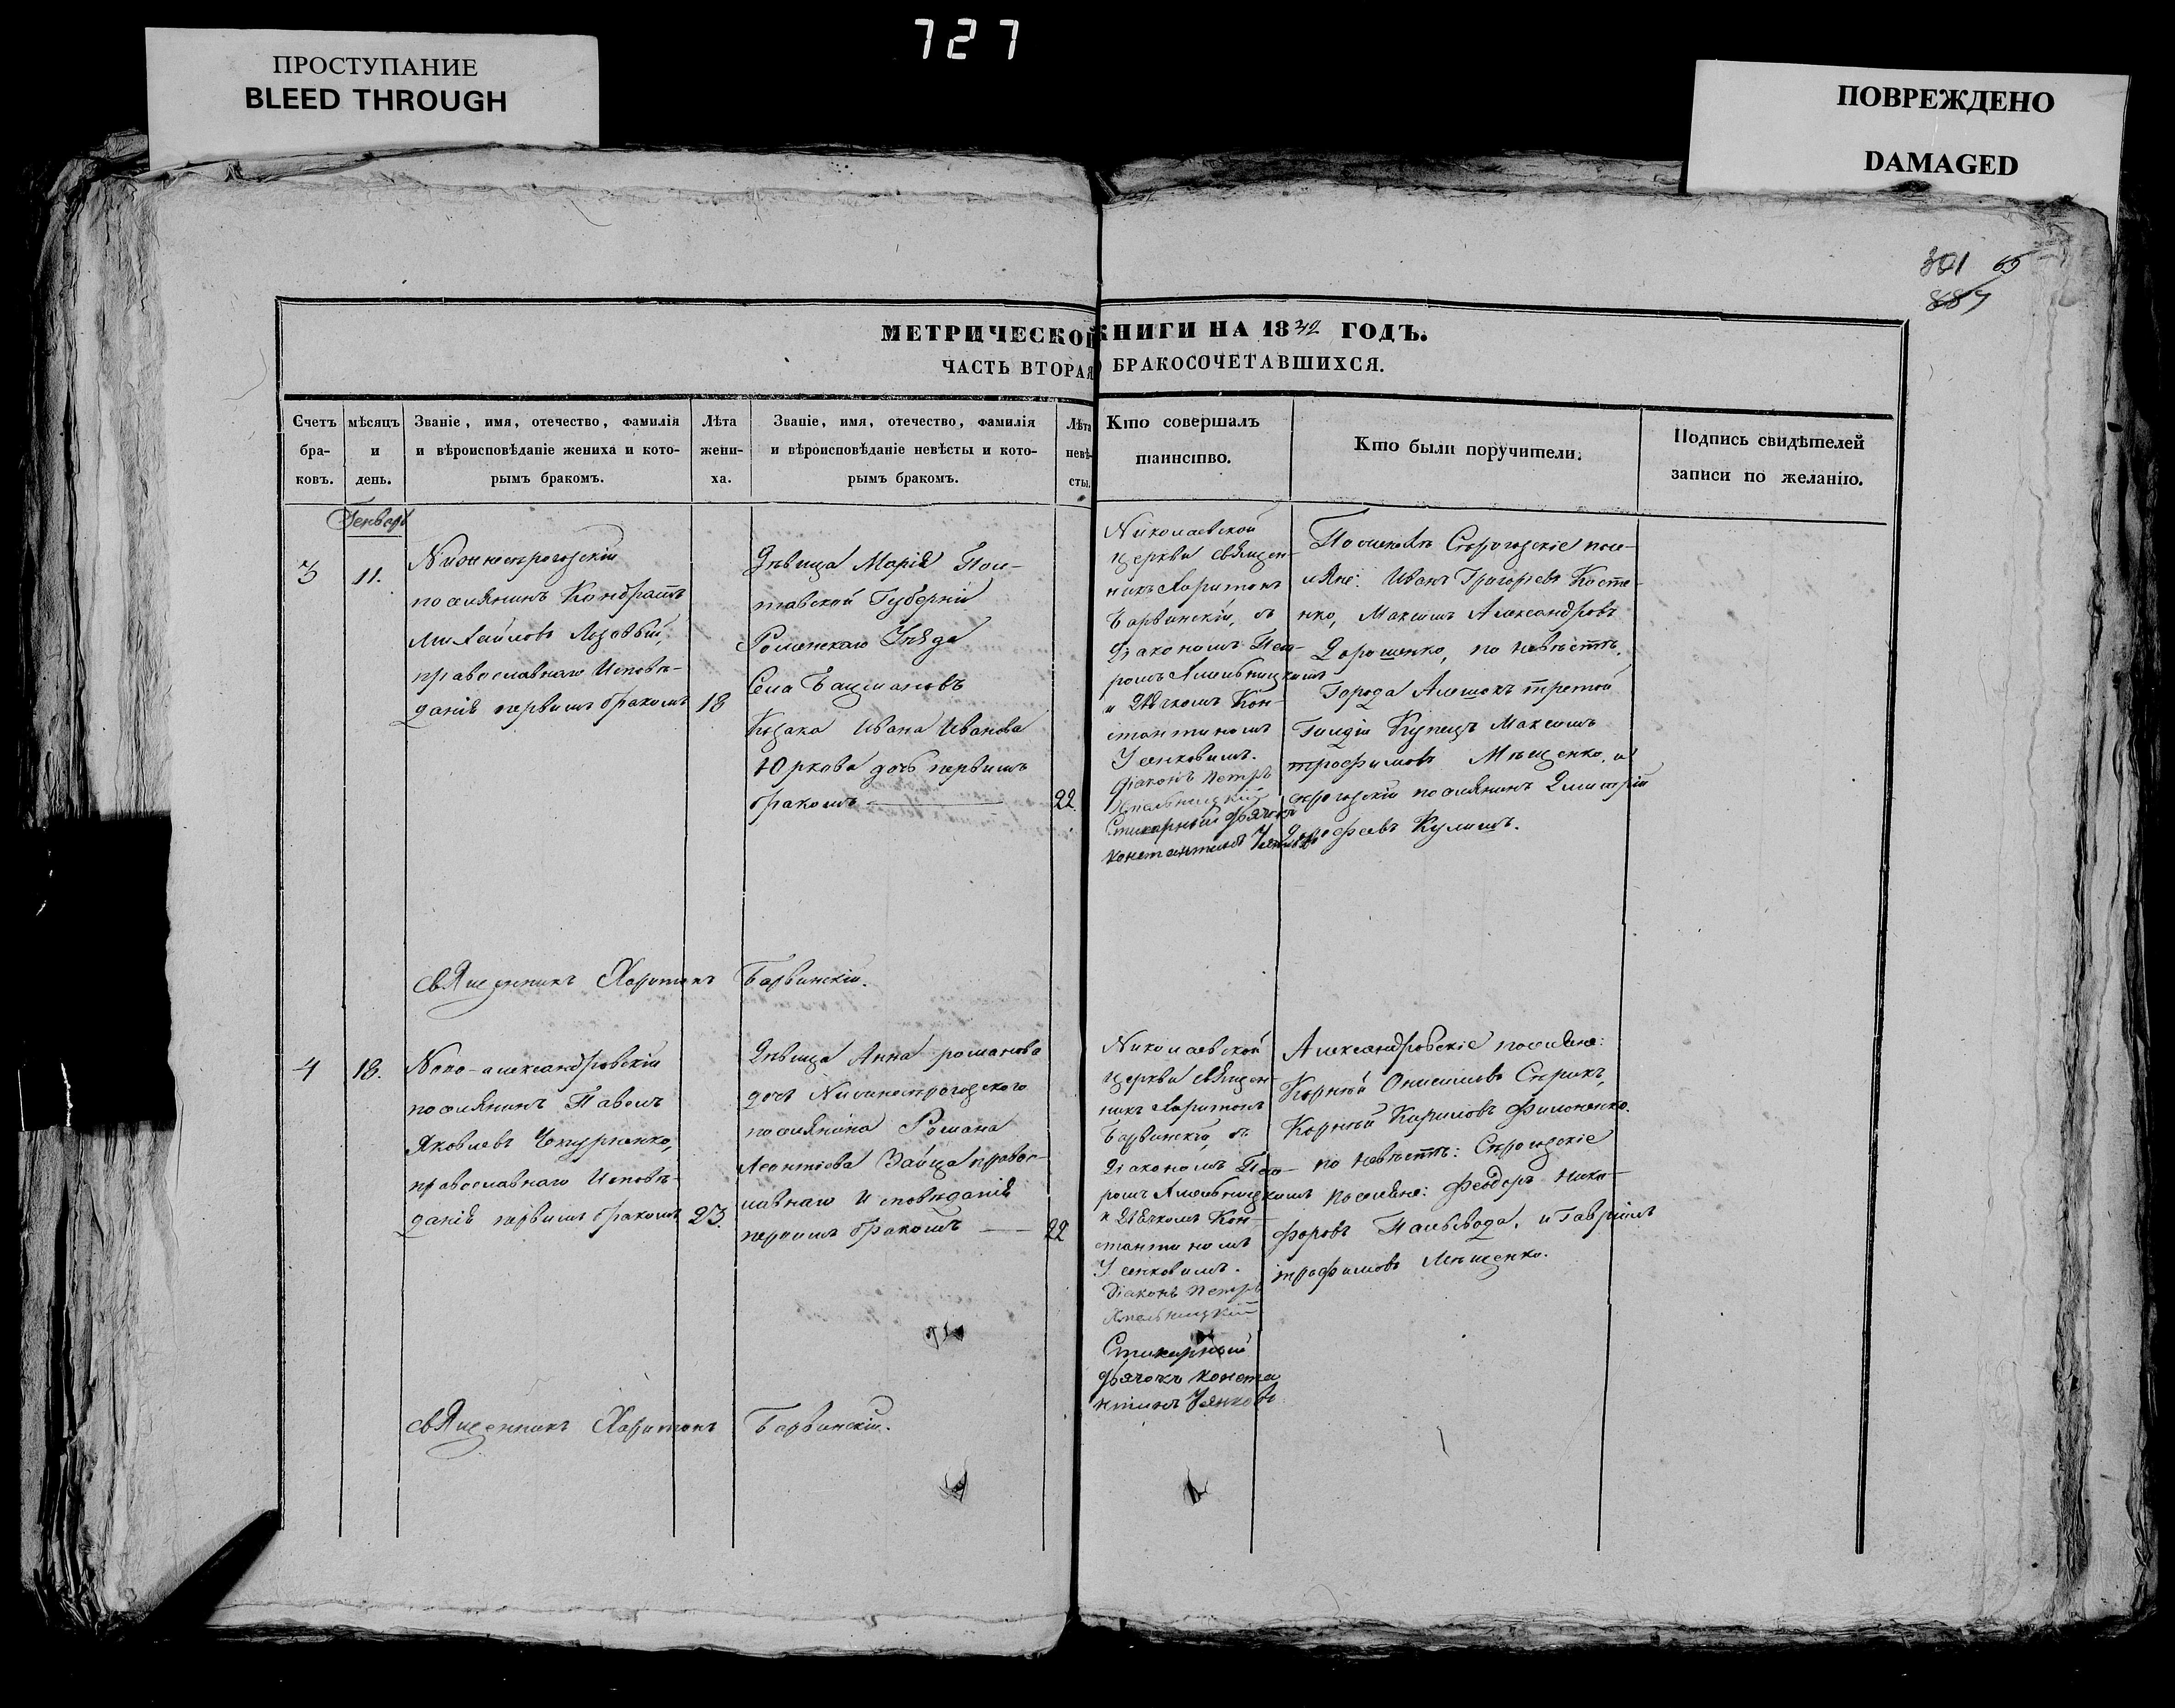 727
ПРОСТУПАНИЕ
BLEED THROUGH
ПОВРЕЖДЕНО
DAMAGED
301 65
887
МЕТРИЧЕСКОЙ КНИГИ НА 1842 ГОДЪ.
ЧАСТЬ ВТОРАЯ О БРАКОСОЧЕТАВШИХСЯ.
Счетъ бра-ковъ.
мѣсяцъ и день.
Званіе, имя, отечество, фамилія
и вѣроисповѣданіе жениха и кото-
рымъ бракомъ.
Лѣта жени-ха.
Званіе, имя, отечество, фамилія
и вѣроисповѣданіе невѣсты и кото-
рымъ бракомъ.
Лѣта невѣ-сты.
Кто совершалъ
таинство.
Кто были поручители.
Подпись свидѣтелей
записи по желанію.
Генварь
3
11.
Нижнесѣрогозскій
поселянинъ Кондратъ
Михайловъ Лозовый,
православнаго Исповѣ-
данія первымъ бракомъ
18
Дѣвица Марія Пол-
тавской Губерніи
Роменскаго Уѣзда
Села Бацмановъ
Козака Ивана Иванова
Юркова дочь первымъ
бракомъ
22
Николаевской
церкви священ-
никъ Харитонъ
Барвинскій, съ
Діакономъ Пет-
ромъ Хмельницкимъ
и Дьячкомъ Кон-
стантиномъ
Усенковимъ.
Діаконъ Петръ
Хмельницкій
Стихарный дьячокъ
Константинъ
По женихѣ Сѣрогозскіе посе-
ляне: Иванъ Григорьевъ Косте-
нко, Максимъ Александровъ
Дорошенко, по невѣстѣ,
Города Алешокъ третой
Гилдіи Купецъ Максимъ
трофимовъ Мѣщенко, и
сѣрогозскій поселянинъ Димитрій
Дорофѣевъ Кулишъ.
священникъ Харитонъ Барвинскій.
4
18.
Ново-александровскій
поселянинъ Павелъ
Яковлевъ
православнаго Исповѣ-
данія первымъ бракомъ
23.
Дѣвица Анна романова
дочь Нижнесѣрогозского
поселянина Романа
Леонтіева Зайца правос-
лавнаго Исповѣданія
первымъ бракомъ
22
Николаевской
церкви священ-
никъ Харитонъ
Барвинскій, съ
Діакономъ Пет-
ромъ Хмельницкимъ
и Дьячкомъ Кон-
стантиномъ
Усенковимъ.
Діаконъ Петръ
Хмельницкій
Стихарный
дьячокъ Конста
нтинъ Усенковъ
Александровскіе поселяне:
Корній Онисимовъ Сѣрикъ,
Корній Кириловъ Филоненко.
по невѣстѣ: Сѣрогозскіе
поселяне: Феодоръ Ники-
форовъ Пальвода, и Гавріилъ
трофимовъ Мѣщенко.
священникъ Харитонъ Барвинскій.